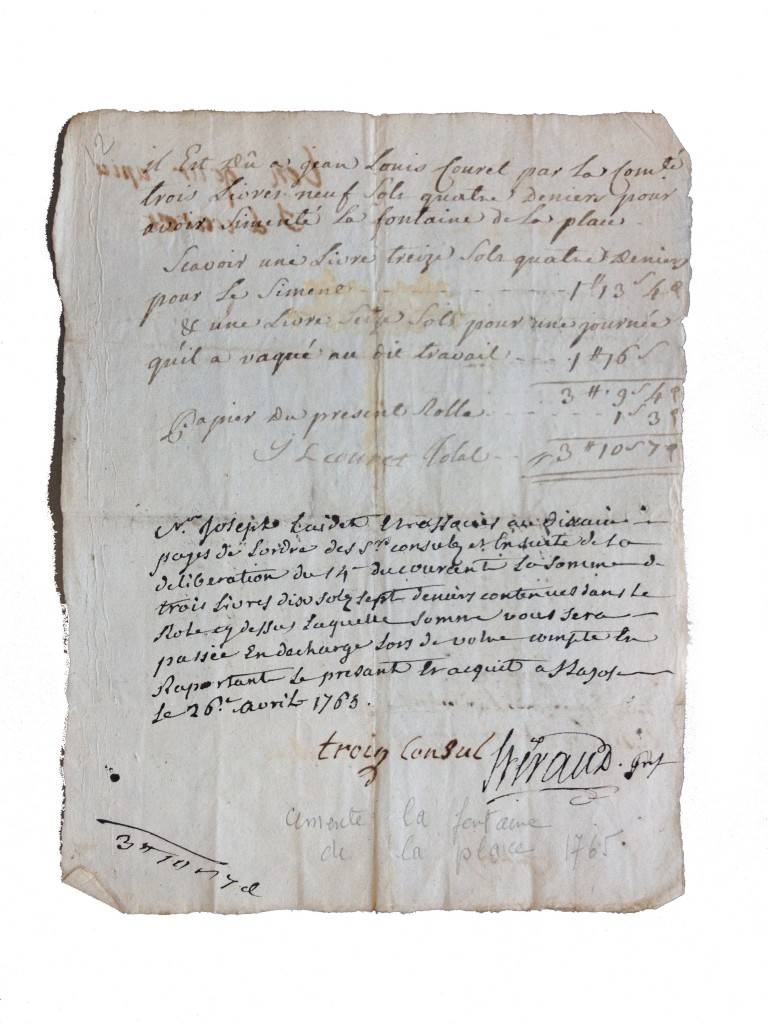 12
il Est Dû a jean Louis Couret par la Comté
trois Livres neuf sols quatre Deniers pour
avoir simenté La fontaine de la place
Scavoir une Livre treize sols quatre Deniers
pour Le Simene 1 ₶ 13 s 4 d
& une Livre Seize Sols pour une journée
quil a vaqué au dit travail 1 ₶ 16 s
3 ₶ 9 s 4 d
Papier Du present Rolle 1 s 3 d
Couret Total 3 ₶ 10 s 7 d
Joseph
payes de Lordre des Srs consulz et Ensuite de La
deliberation du 14e du courant La somme de
trois Livres dix solz sept deniers contenües dans le
Role cy dessus Laquelle somme vous sera
passée En decharge Lors de votre compte En
Raportant Le presant Et acquit a
Le 26e avril 1765.
troin Consul
cimenté la fontaine
de la place 1765.
3 ₶ 10 s 7 d